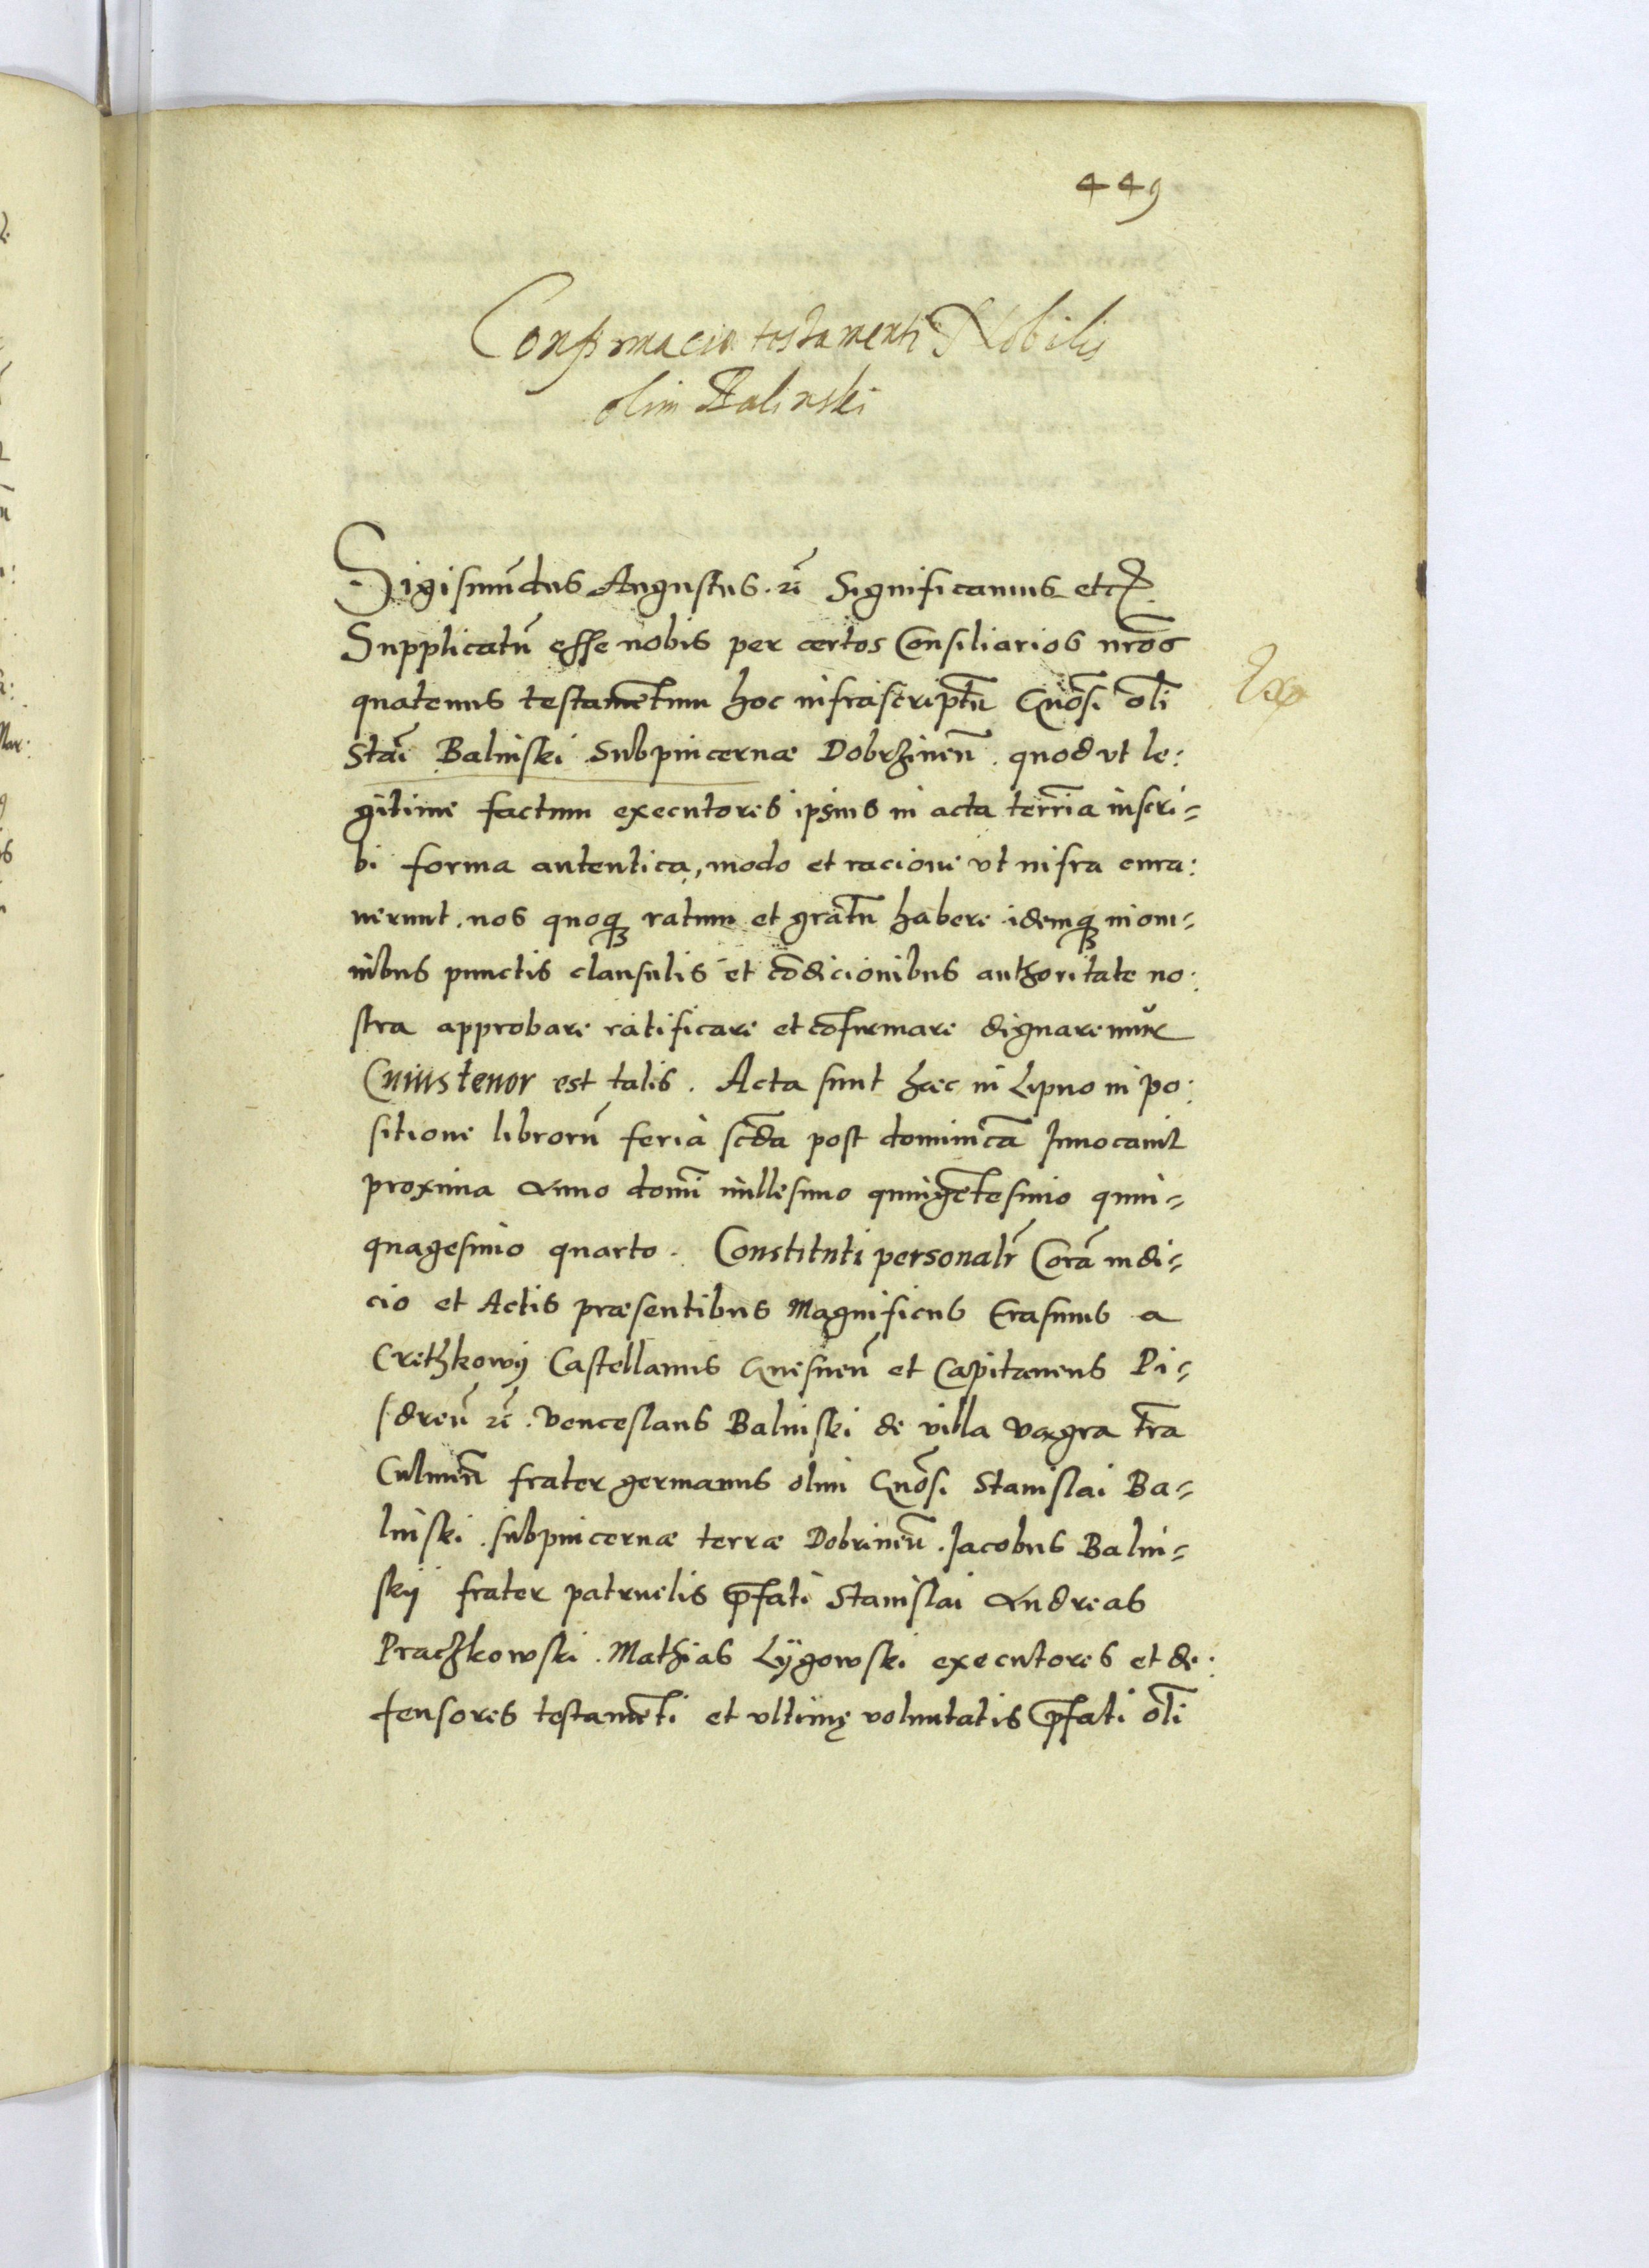 449
Confirmacio testamenti Nobilis
olim Balinski
Sigismūdus Augustus. etc̄ Significamus etc.
Supplicatū esse nobis per certos Consiliarios nr̄os
quatenus testamētum hoc infrascriptū Gn̄osi oli̅
Stāi Balinski Subpincernæ Dobrzinen̄. quod vt le:
gitime factum executores ipsius in acta terr̄ia inscri=
bi forma autentica, modo et racione vt infra cura:
uerunt. nos quoq₃ ratum et gratū habere idemq₃ in om=
nibus punctis clausulis et cōdicionibus authoritate no:
stra approbare ratificare et cōfirmare dignaremur
Cuius tenor est talis. Acta sunt hæc in Lipno in po:
sitione librorū feria scd̄a post dominicā Inuocauit
proxima Anno domī millesimo quingētesimo quin=
quagesimo quarto. Constituti personalr̄ Corā iudi=
cio et Actis præsentibus Magnificus Erasmus a
Crethkowij Castellanus Gnesnen̄ et Capitaneus Pi=
sdren̄ etc̄. Venceslaus Balinski de villa Vagra tr̄a
Culmen̄ frater germanus olim Gn̄osi Stanislai Ba=
linski subpincernæ terræ Dobrinen̄. Jacobus Balin=
skij frater patruelis p̄fati Stanislai Andreas
Praczkowski. Mathias Lÿgowski executores et de:
fensores testamēti et vltimę voluntatis p̄fati oli̅